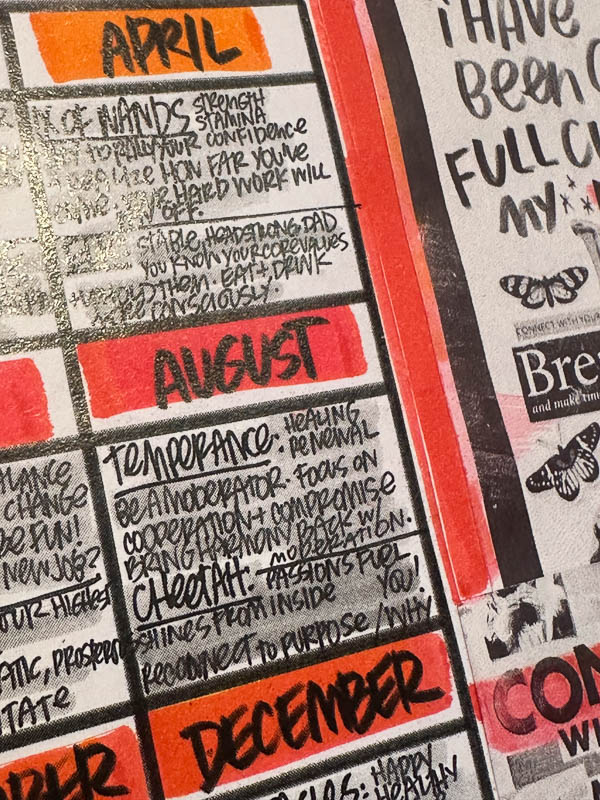 APRIL
OF WANDS STRENGTH
STAMINA
YOUR CONFIDENCE
HOW FAR YOU'VE
HARD WORK WILL
OFF.
STABLE, HEADSTRONG, DAD
YOU KNOW YOUR CORE VALUES
THEM. EAT + DRINK
CONSCIOUSLY.
AUGUST
TEMPERANCE: HEALING
RENEWAL
BE A MODERATOR. FOCUS ON
COOPERATION + COMPROMISE
BRING HARMONY BACK W/
MODERATION.
CHEETAH: PASSIONS FUEL
SHINES FROM INSIDE YOU!
RECONNECT TO PURPOSE / WHY
CHANGE
BE FUN!
NEW JOB?
OUR HIGHEST
DECEMBER
HAPPY
HEALTHY
I HAVE
BEEN
FULL
MY
CONNECT WITH YOUR
Bre
and make time
CON
WI